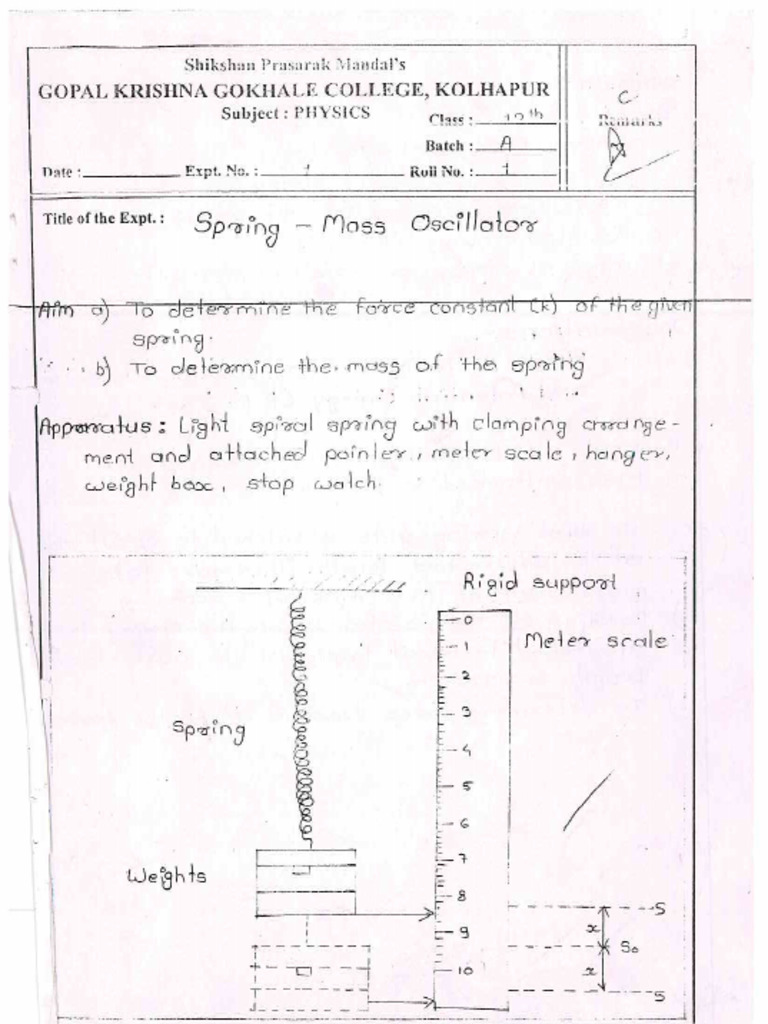 Shikshan Prasarak Mandal's
GOPAL KRISHNA GOKHALE COLLEGE, KOLHAPUR
Subject : PHYSICS
Class : 12th
C
Remarks
Batch : A
Date : Expt. No. : 1 Roll No. : 1
Title of the Expt. : Spring - Mass Oscillator
Aim a) To determine the force constant (k) of the given
spring.
b) To determine the mass of the spring
Apparatus : Light spiral spring with clamping arrange-
ment and attached pointer, meter scale, hanger,
weight box, stop watch.
Rigid support
0
Meter scale
1
2
3
Spring
4
5
6
7
Weights
8
S
9
x
S₀
x
10
S